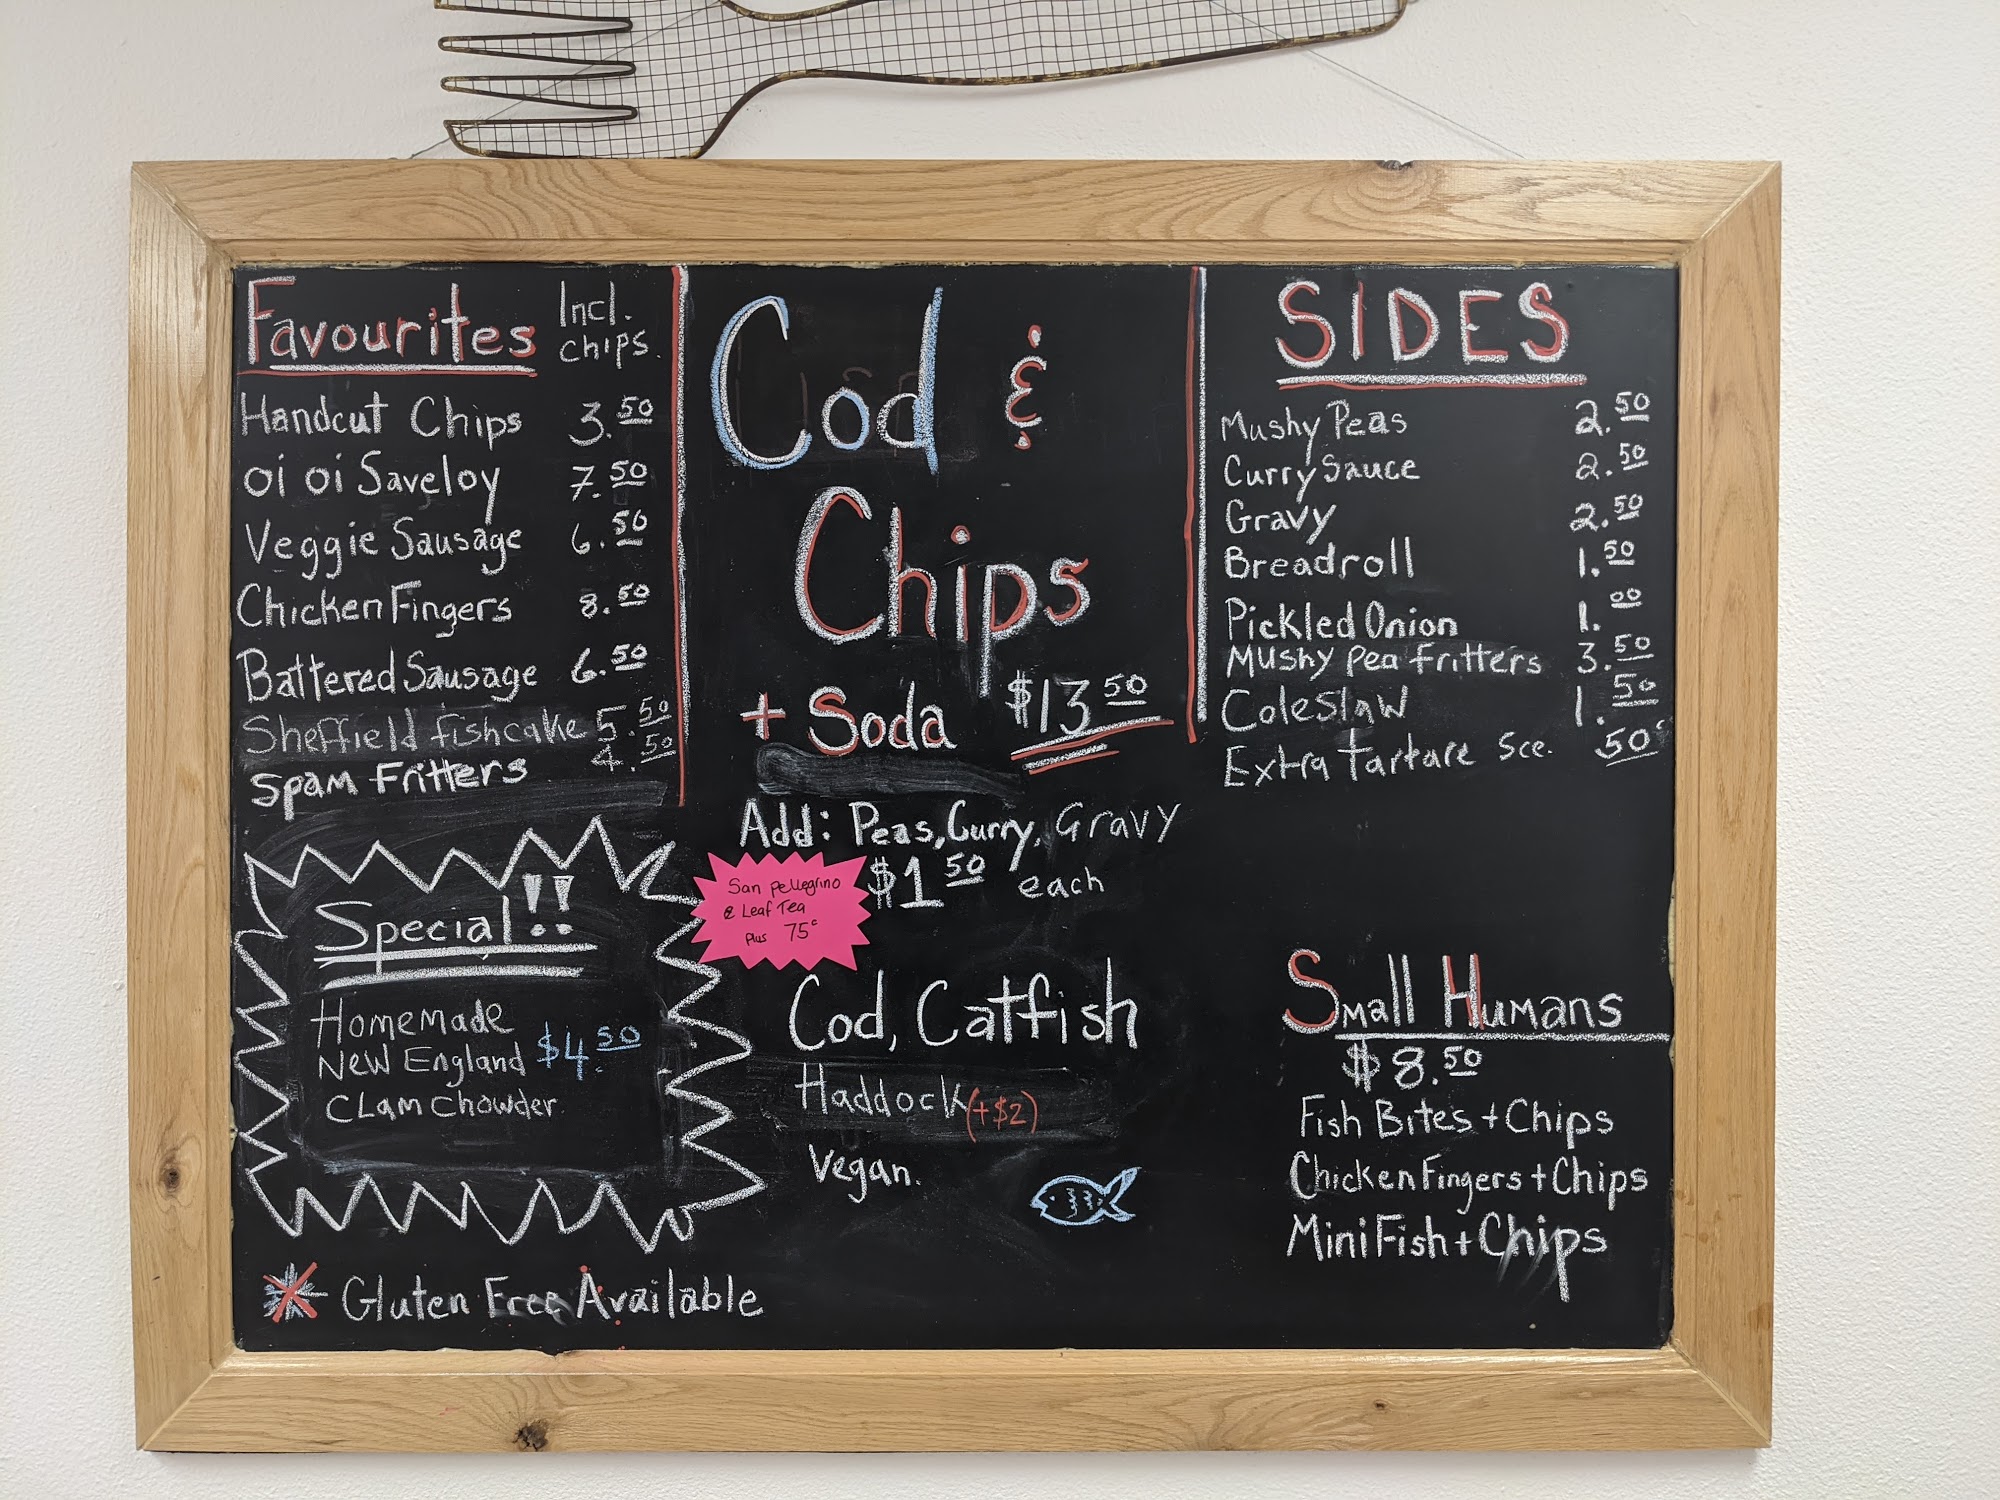 Favourites Incl. chips.
Handcut Chips 3.50
oi oi Saveloy 7.50
Veggie Sausage 6.50
Chicken Fingers 8.50
Battered Sausage 6.50
Sheffield fishcake 5.50
Spam Fritters 4.50
Special!!
Homemade
New England $4.50
Clam Chowder
Gluten Free Available
Cod &
Chips
+ Soda $13.50
Add: Peas, Curry, Gravy
$1.50 each
San Pellegrino
& Leaf Tea
Plus 75c
Cod, Catfish
Haddock (+$2)
Vegan.
SIDES
Mushy Peas 2.50
Curry Sauce 2.50
Gravy 2.50
Breadroll 1.50
Pickled Onion 1.00
Mushy pea fritters 3.50
Coleslaw 1.50
Extra tartare sce. .50c
Small Humans
$8.50
Fish Bites + Chips
Chicken Fingers + Chips
Mini Fish + Chips